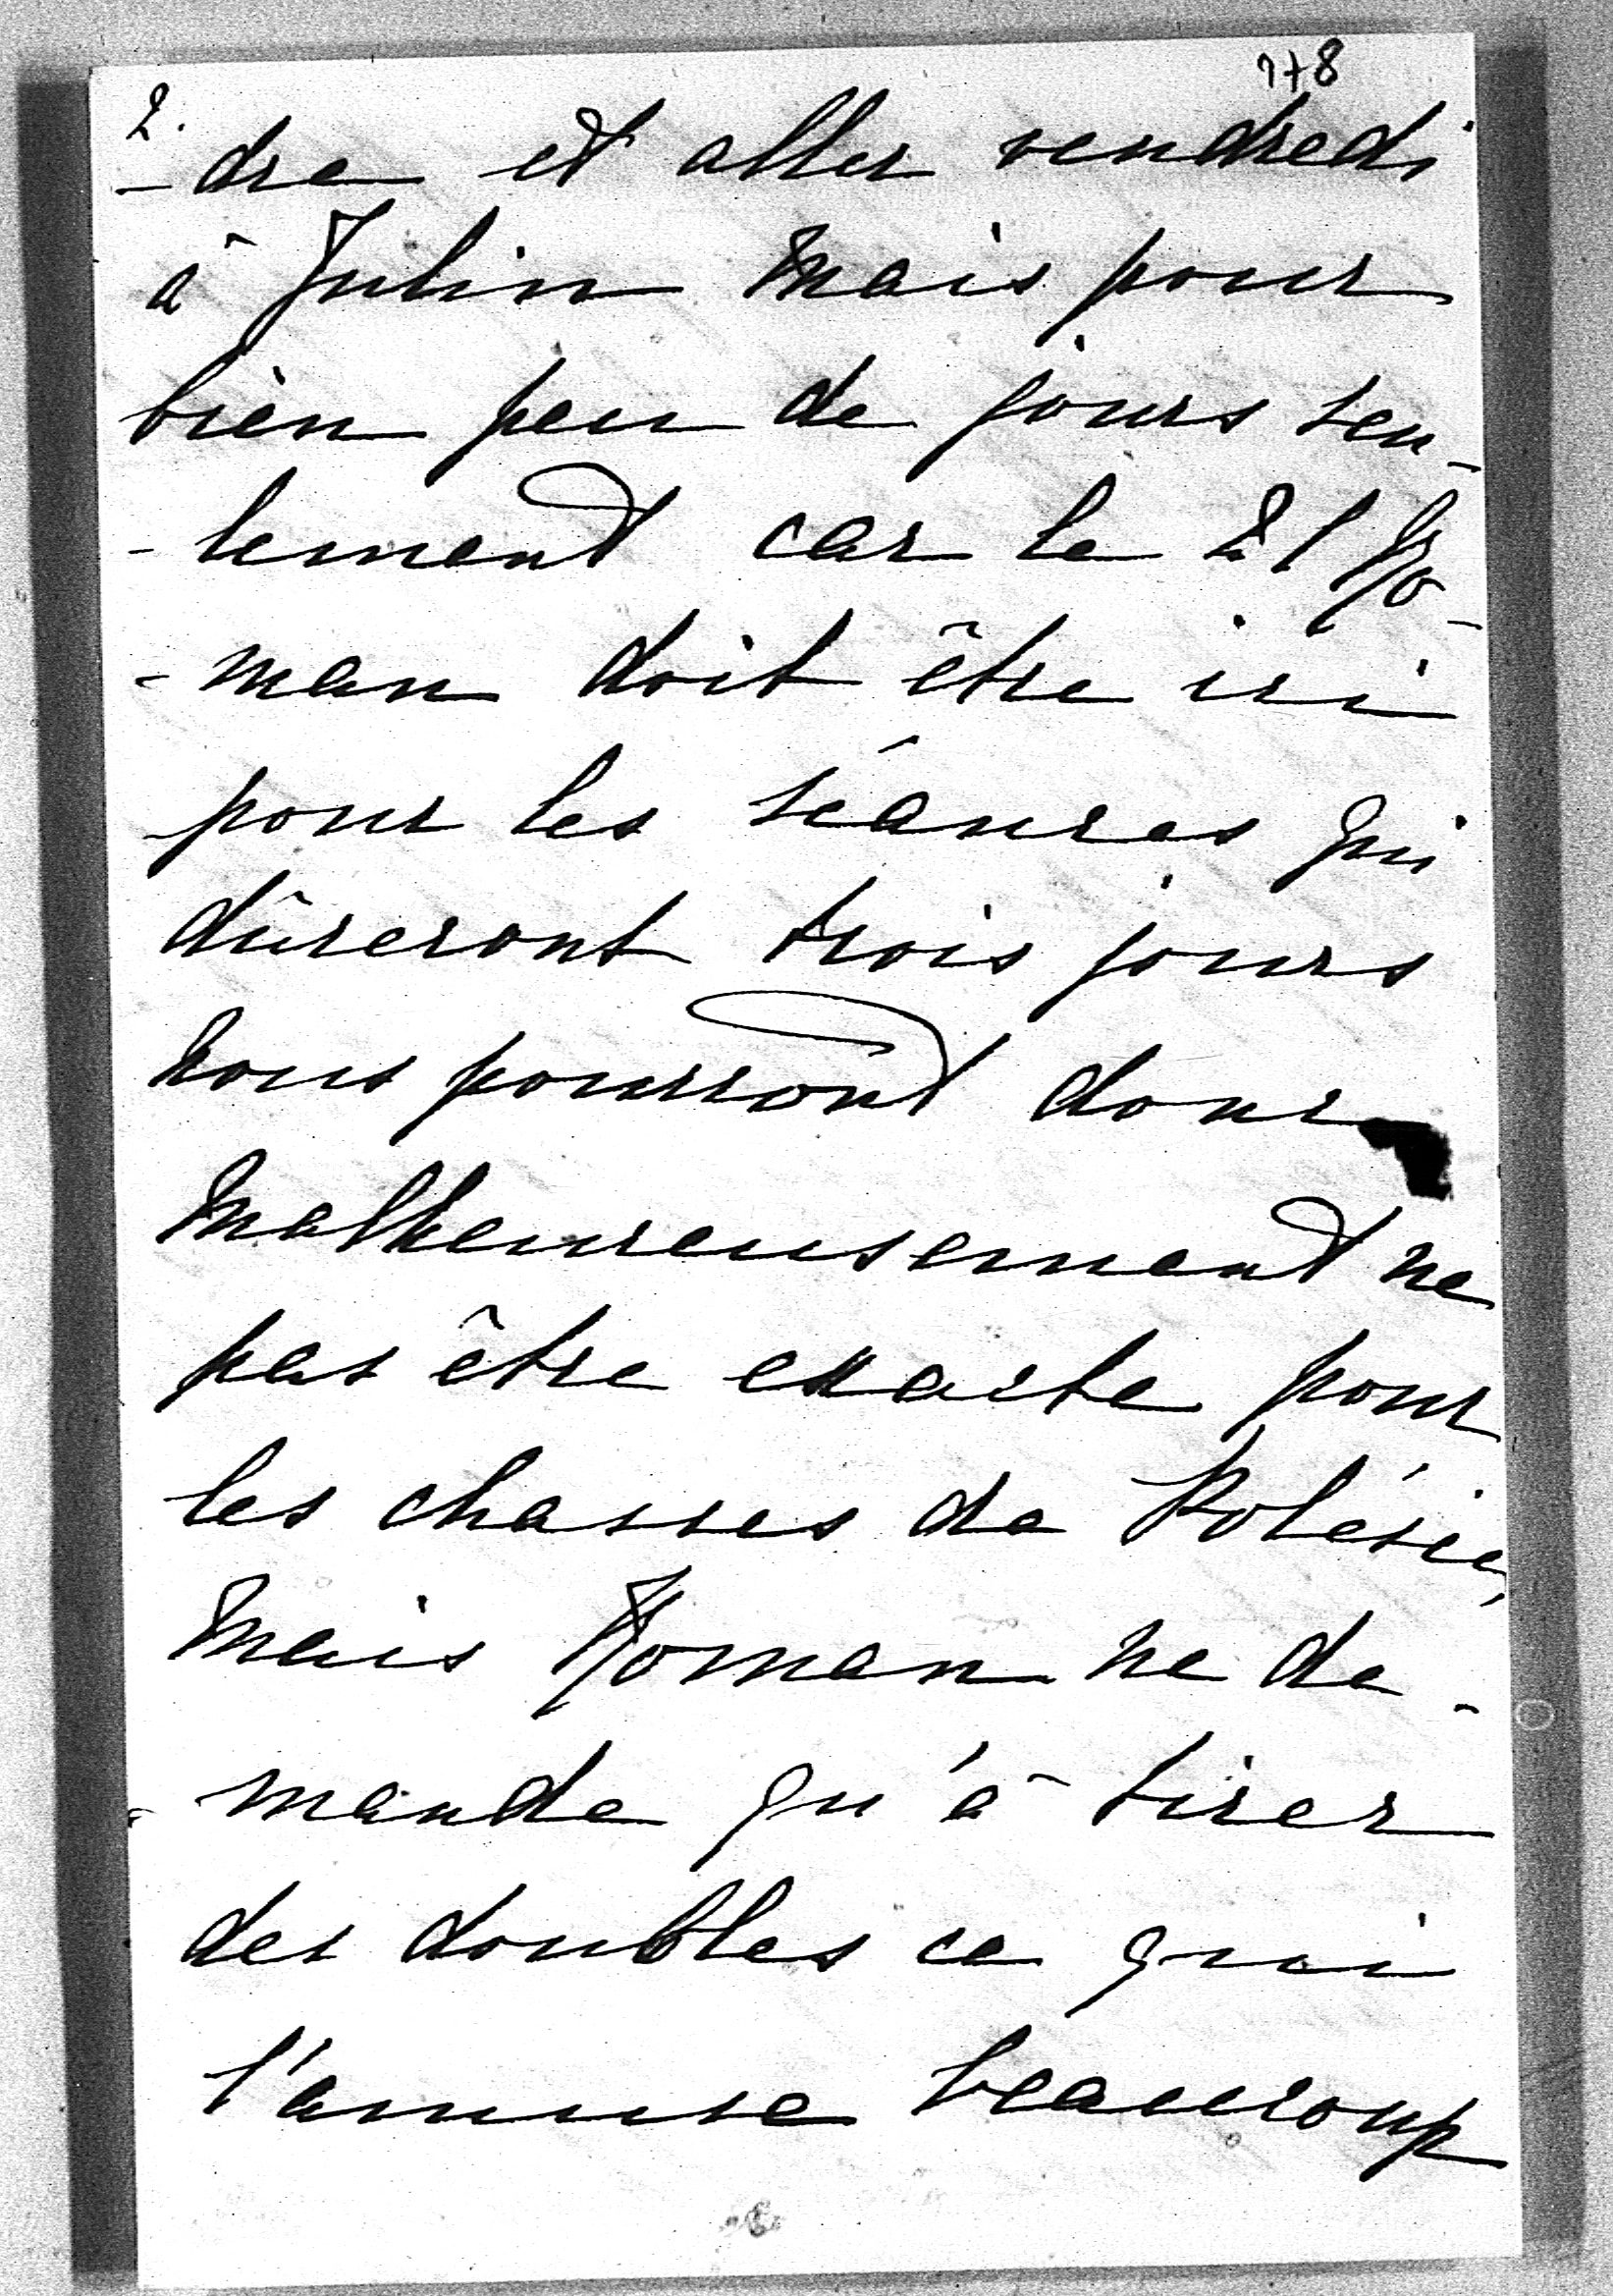 2.
178
-dre et aller vendredi
à Julin mais pour
bien peu de jours seu-
-lement car le 21 Ro-
-man doit être ici
pour les séances qui
dûreront trois jours
nous pourront donc
malheureusement ne
pas être exacte pour
les chasses de Polésie,
mais Roman ne de-
-mande qu'à tirer
des doubles ce qui
l'amuse beaucoup